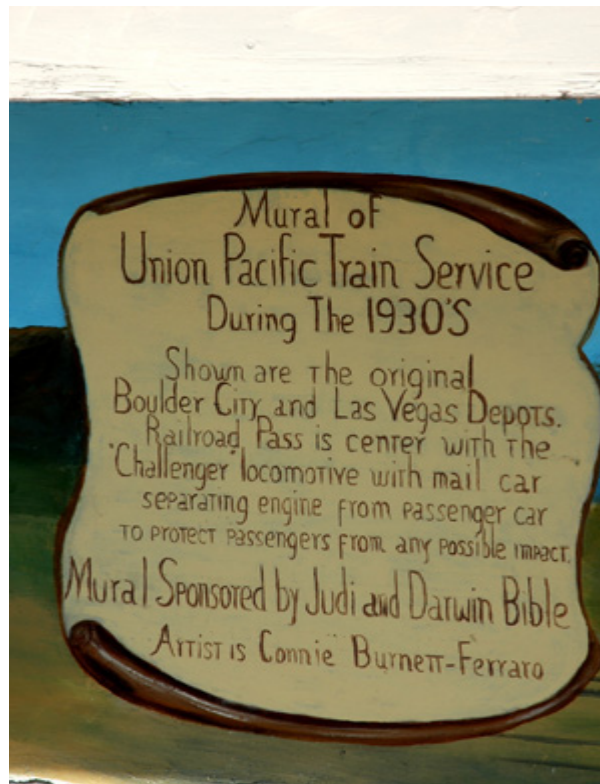 Mural of
Union Pacific Train Service
During The 1930'S
Shown are the original
Boulder City and Las Vegas Depots.
Railroad Pass is center with the
"Challenger" locomotive with mail car
separating engine from passenger car
to protect passengers from any possible impact.
Mural Sponsored by Judi and Darwin Bible
Artist is Connie Burnett-Ferraro